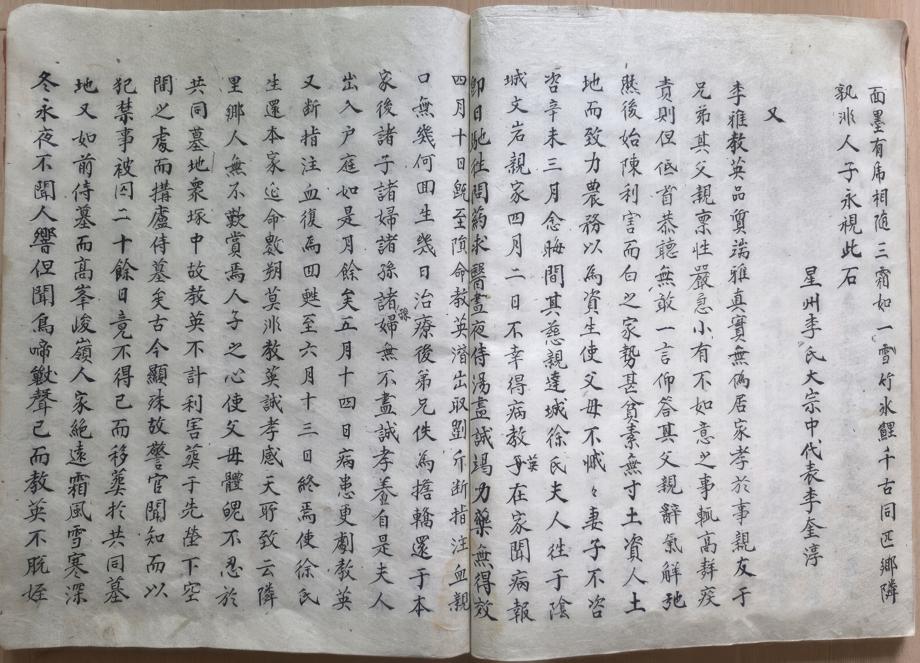 面墨有席相随三霜如一雪竹氷鯉千古同匹鄉隣
孰非人子永視此石
星州李氏大宗中代表李奎淳
又
李雅教英品質端雅真實無僞居家孝於事親友于
兄弟其父親稟性嚴急小有不如意之事輒高聲疾
責則但低首恭聽無敢一言仰答其父親辭氣解弛
然後始陳利害而白之家勢甚貧素無寸土資人土
地而致力農務以為資生使父母不慽々妻子不咨
咨辛未三月念晦間其慈親達城徐氏夫人徃于陰
城文岩親家四月二日不幸得病教英母在家聞病報
卽日馳徃問葯求醫晝夜侍湯盡誠竭力藥無得效
四月十日甑至隕命教英潛出取劉斤断指注血親
口無幾何回生幾日治療後弟兄佚為擔轎還于本
家後諸子諸婦諸孫諸孫婦無不盡誠孝養自是夫人
出入户庭如是月餘矣五月十四日病患更劇教英
又断指注血復為回甦至六月十三日終焉使徐氏
生還本家延命數朔莫非教英誠孝感天所致云隣
里鄉人無不歎賞焉人子之心使父母體魄不忍於
共同墓地衆塚中故教英不計利害葬于先塋下空
間之處而搆廬侍墓矣古今顯殊故警官聞知而以
犯禁事被囚二十餘日竟不得已而移葬於共同墓
地又如前侍墓而高峯峻嶺人家絶遠霜風雪寒深
冬永夜不聞人響但聞鳥啼獸聲已而教英不脫絰